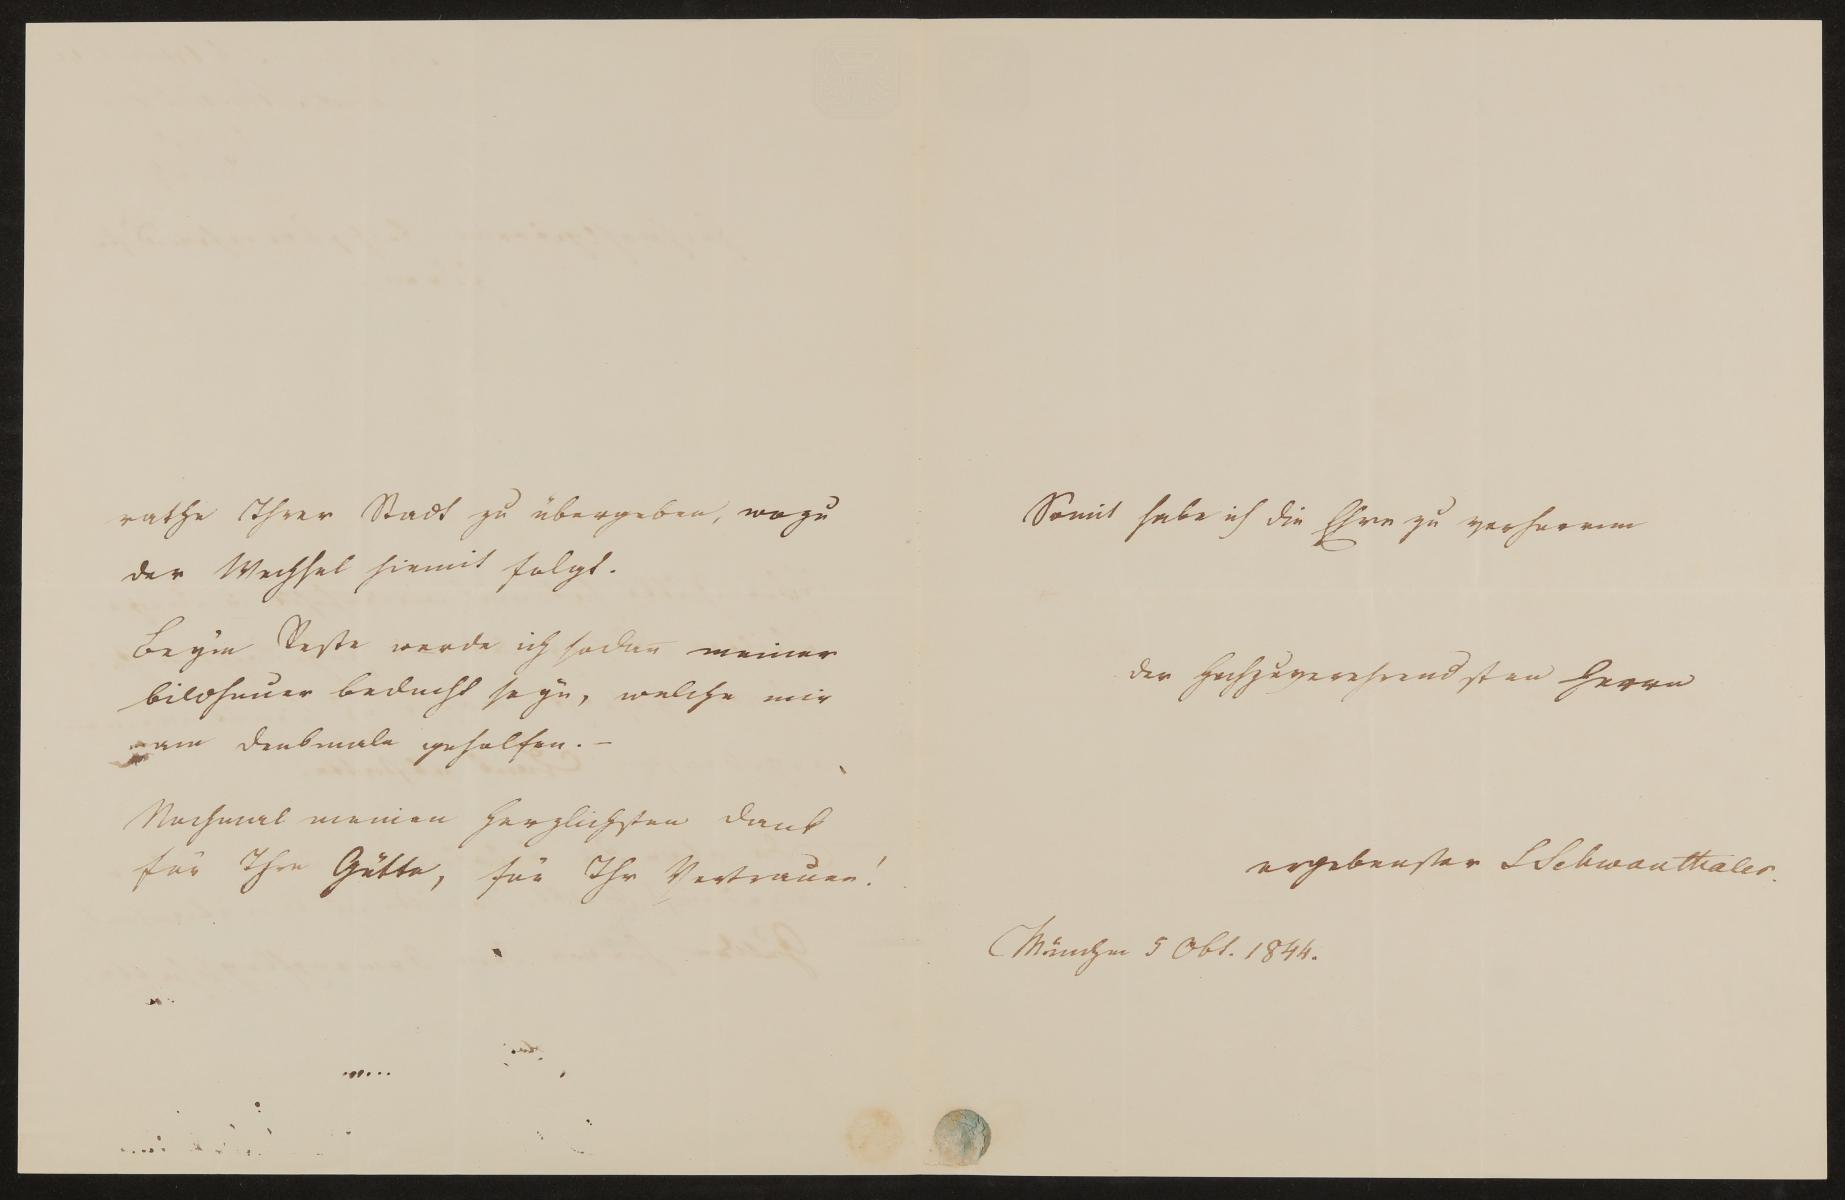 rathe Ihrer Stadt zu übergeben, wozu
der Wechsel hiemit folgt.
Beym Reste werde ich sodan̄ meiner
bildhauer bedacht seyn, welche mir
am Denkmale geholfen. –
Nochmal meinen herzlichsten Dank
für Ihre Gütte, für Ihr Vertrauen!
Somit habe ich die Ehre zu verharren
der Hochzuverehrendsten Herrn
ergebenster LSchwanthaler.
München 5 Okt. 1844.